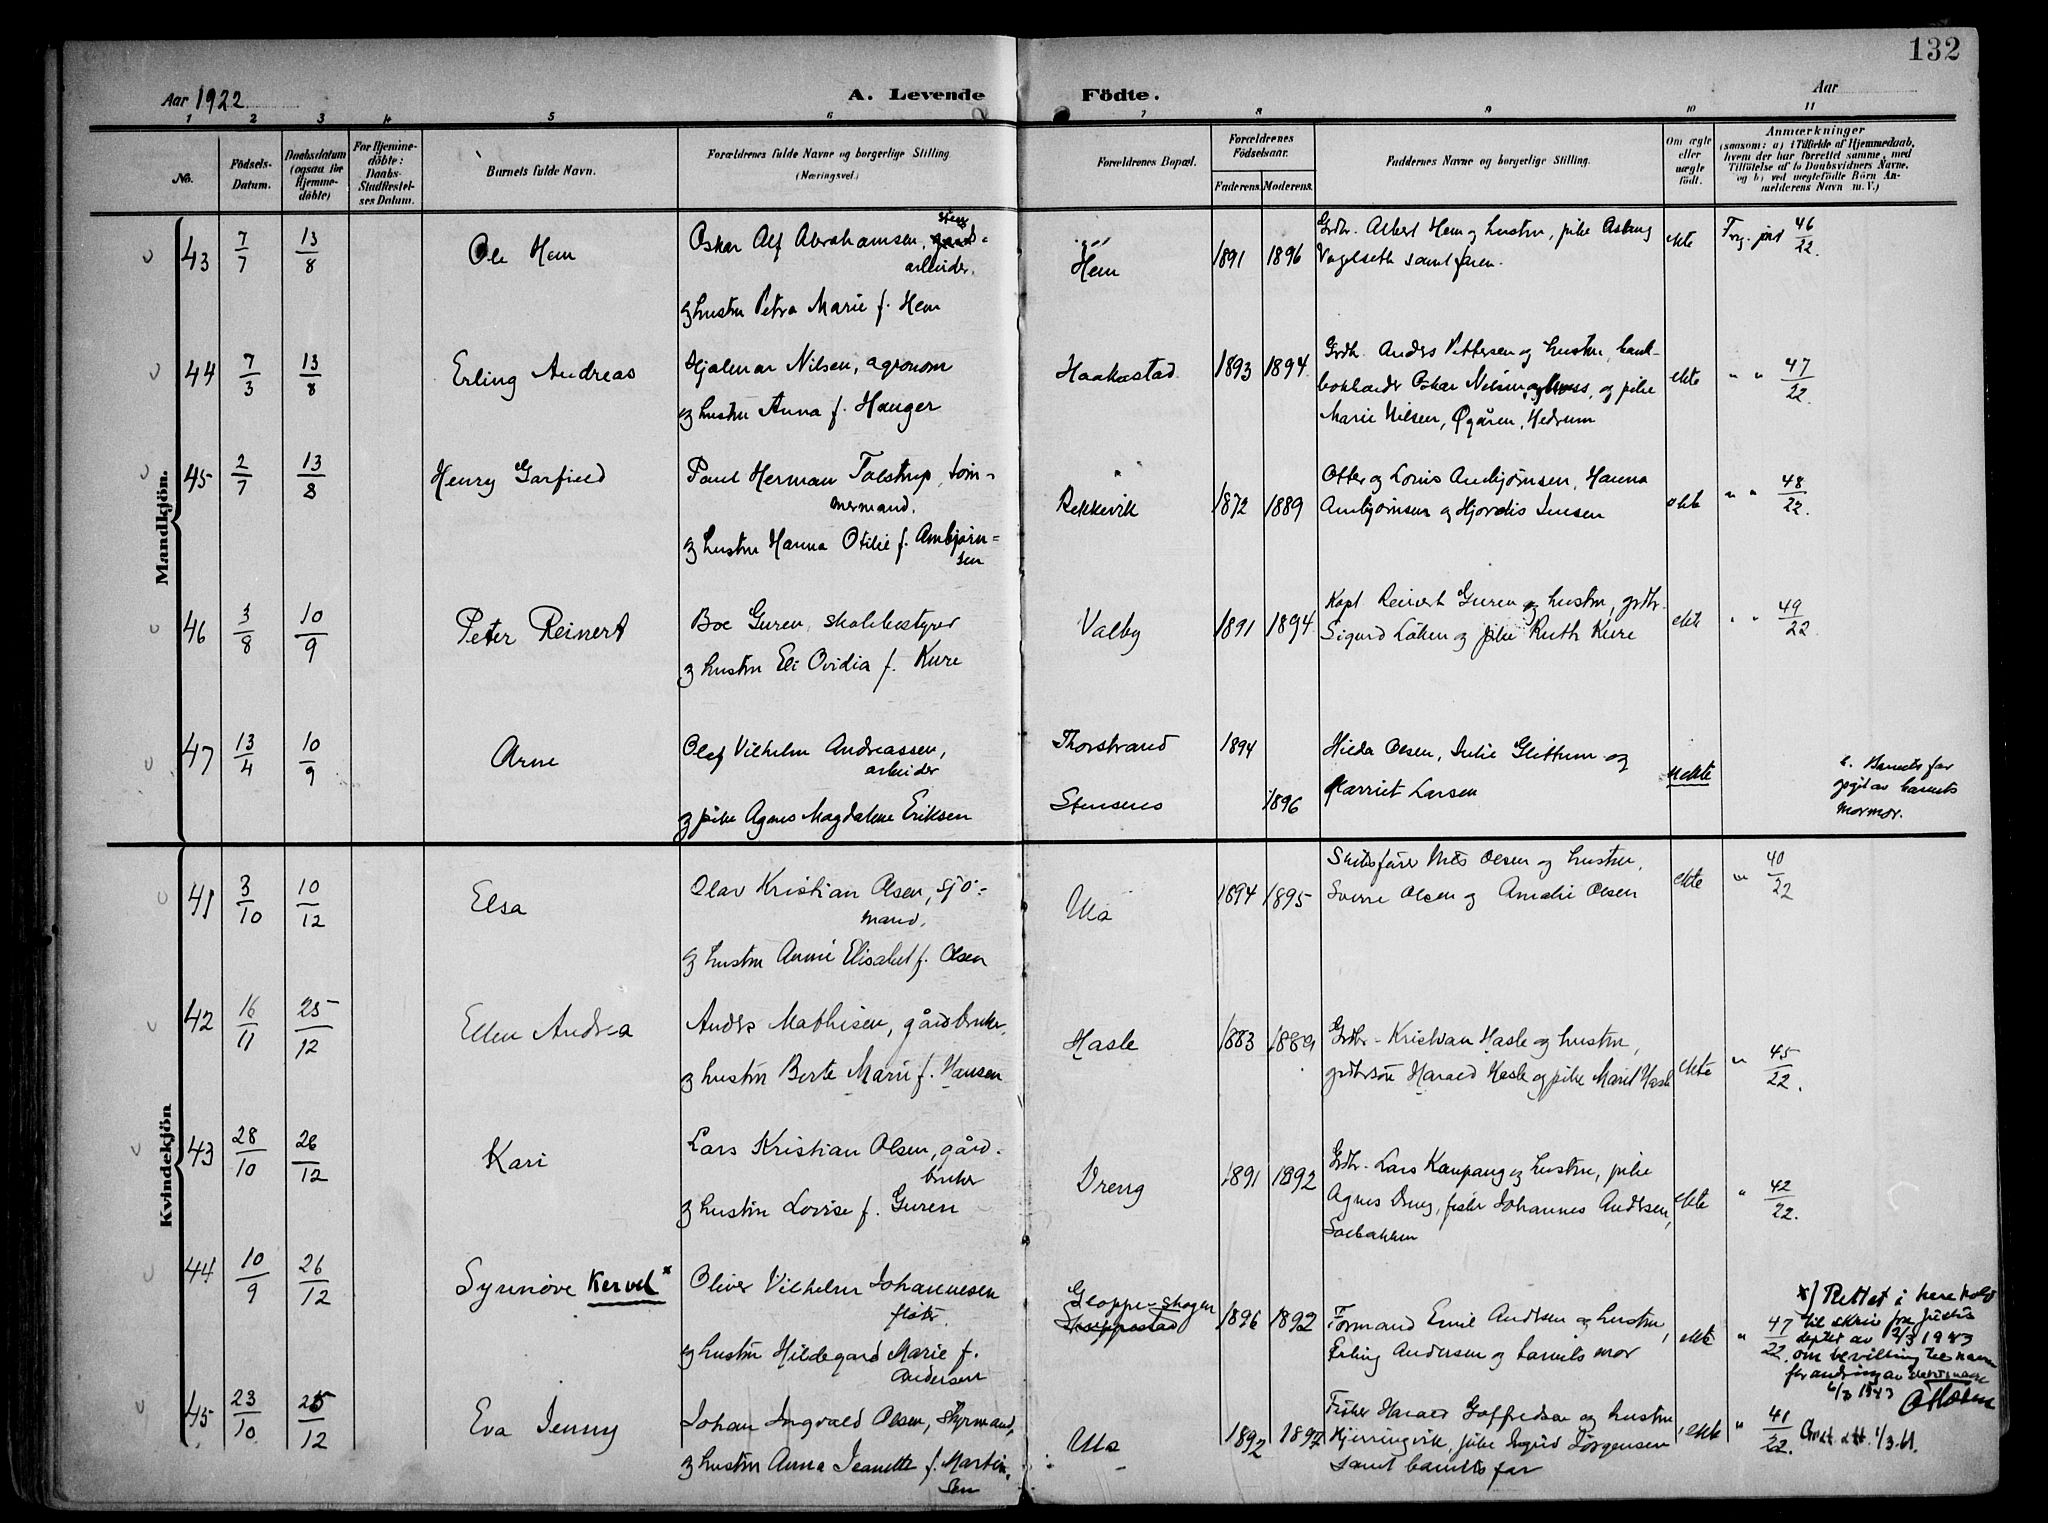 132
Aar 1922
A. Levende Födte.
Aar
1 2 3 4 5 6 7 8 9 10 11
No.
Födsels-Datum.
Daabsdatum (ogsaa for Hjemmedöbte)
For Hjemmedöbte: Daabs-Stadfæstelses Datum.
Barnets fulde Navn.
Forældrenes fulde Navne og borgerlige Stilling. (Næringsvei.)
Forældrenes Bopæl.
Forældrenes Födselsaar.
Faderens. Moderens.
Faddernes Navne og borgerlige Stilling.
Om ægte eller uægte födt.
Anmærkninger
(saasom: a) i Tilfælde af Hjemmedaab, hvem der har forrettet samme, med Tilföielse af to Daabsvidners Navne, og b) ved uægtefödte Börn Anmelderens Navn m. V.)
Mandkjön.
43 7/7 13/8 Ole Hem
Oskar Alf Abrahamsen, sten-
arbeider.
og hustru Petra Marie f. Hem
Hem 1891 1896
Grdbr. Albert Hem og hustru, pike Aslaug
Vagelseth samt faren.
ekte
46/22.
44 7/3 13/8 Erling Andreas
Hjalmar Nilsen, agronom
og hustru Anna f. Hauger
Haakestad 1893 1894
Grdbr. Anders Pettersen og hustru, bank-
bokholder Oskar Nilsen, Moss, og pike
Marie Nilsen, Øgåren, Hedrum
ekte " " 47/22.
45 2/7 13/8 Henry Garfield
Paul Herman Tolstrup, töm-
mermand.
og hustru Hanna Otilie f. Ambjørn-
sen
Rekkevik 1872 1889
Otter og Louis Ambjørnsen, Hanna
Ambjørnsen og Hjordis Jensen
ekte " " 48/22.
46 3/8 10/9 Peter Reinert
Boe Guren, skolebestyrer
og hustru Eli Ovidia f. Kure
Valby 1891 1894
Kapt. Reinert Guren og hustru, grdbr.
Sigurd Löken og pike Ruth Kure
ekte " " 49/22
47 13/4 10/9 Arne
Olaf Vilhelm Andreassen,
arbeider
og pike Agnes Magdalene Eriksen
Thorstrand 1894
Stensnes 1896
Hilda Olsen, Julie Glittum og
Harriet Larsen
uekte
Barnets far
opgit av barnets
mormor.
Kvindekjön
41 3/10 10/12 Elsa
Olav Kristian Olsen, sjö-
mand.
og hustru Annie Elisabet f. Olsen
Ula 1894 1895
Skibsfører Nils Olsen og hustru,
Sverre Olsen og Amalie Olsen
ekte " 40/22
42 16/11 25/12 Ellen Andrea
Anders Mathisen, gårdbruker,
og hustru Berte Marie f. Hansen
Hasle 1883 1889
Grdbr. Kristian Hasle og hustru,
grdbrsön Harald Hasle og pike Marit Hasle
ekte " 45/22.
43 28/10 26/12 Kari
Lars Kristian Olsen, gård-
bruker
og hustru Lovise f. Guren
Vreng 1891 1892
Grdbr. Lars Kaupang og hustru, pike
Agnes Vreng, fisker Johannes Andersen,
Solbakken
ekte " 42/22.
44 10/9 26/12 Synnöve Kervel x
Oliver Vilhelm Johannesen
fisker.
og hustru Hildegard Marie f.
Andersen
Gloppeskogen 1896 1892
Formand Emil Andersen og hustru,
Erling Andersen og barnets mor
ekte " 47/22.
x) Rettet i henhold
til skriv fra Justis
deptet av 2/3 1943
om bevilling til navne
forandring av slektsnavn
45 23/10 25/12 Eva Jenny
Johan Ingvald Olsen, styrmand,
og hustru Anna Jeanette f. Martin-
sen
Ula 1892 1892
Fisker Harald Gotfredsen og hustru
Hjerringvik, pike Ingrid Jörgensen
samt barnets far
ekte " 41/22.